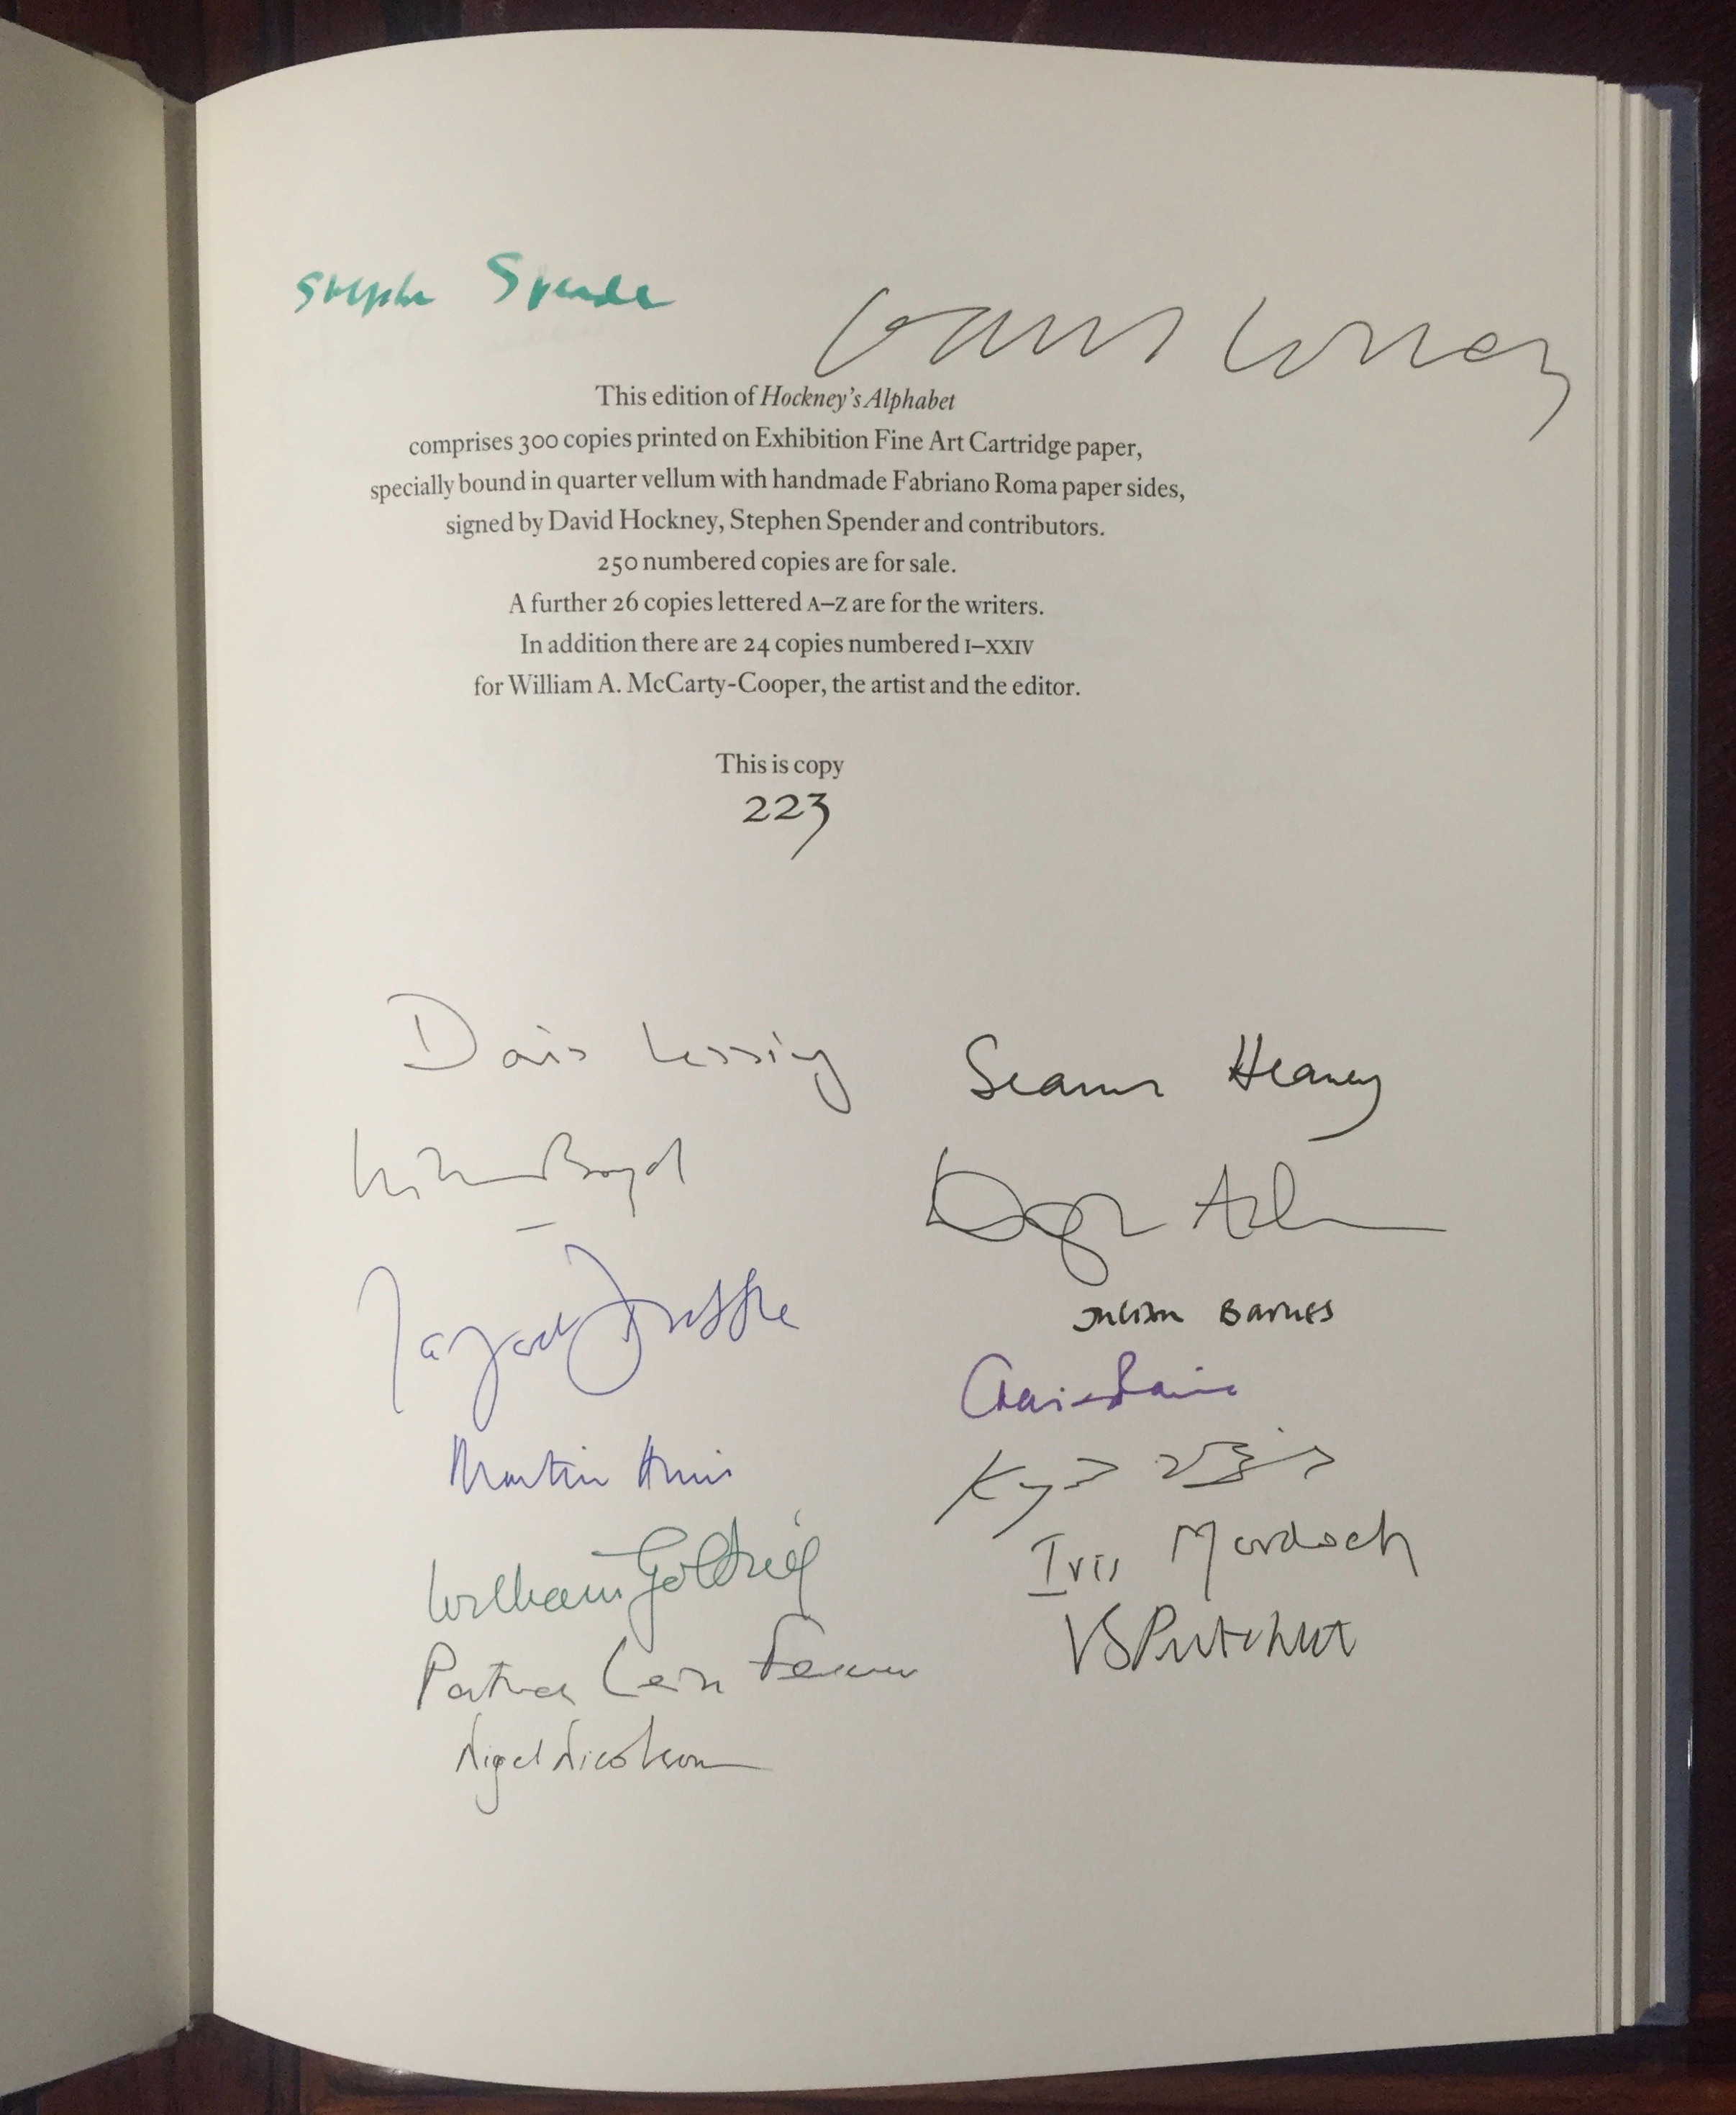 Stephen Spender
David Hockney
This edition of Hockney's Alphabet
comprises 300 copies printed on Exhibition Fine Art Cartridge paper,
specially bound in quarter vellum with handmade Fabriano Roma paper sides,
signed by David Hockney, Stephen Spender and contributors.
250 numbered copies are for sale.
A further 26 copies lettered A–Z are for the writers.
In addition there are 24 copies numbered I–XXIV
for William A. McCarty-Cooper, the artist and the editor.
This is copy
223
Doris Lessing
Seamus Heaney
William Boyd
Douglas Adams
Margaret Drabble
Julian Barnes
Craig Raine
Martin Amis
Iris Murdoch
William Golding
VS Pritchett
Patrick Leigh Fermor
Nigel Nicolson